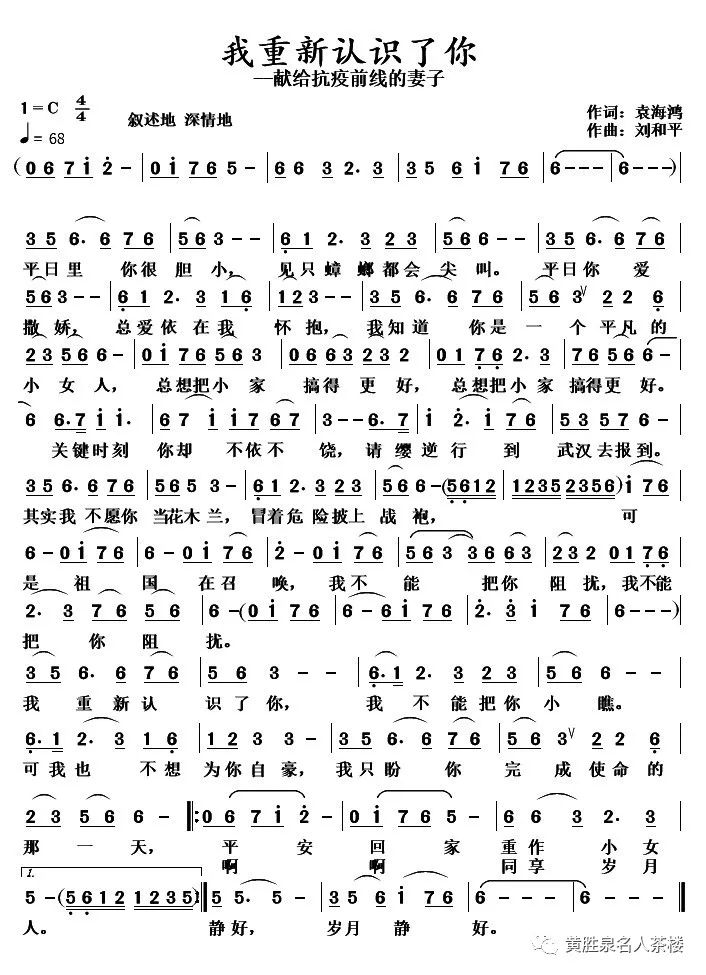 我重新认识了你
—献给抗疫前线的妻子
1=C 4/4
♩= 68
叙述地 深情地
作词：袁海鸿
作曲：刘和平
(0 6 7 i 2 - | 0 i i 7 6 5 - | 6 6 3 2. 3 | 3 5 6 i 7 6 | 6 - - - | 6 - - -)|
3 5 6. 6 7 6 | 5 6 3 - - | 6 1 2. 3 2 3 | 5 6 6 - - | 3 5 6. 6 7 6 |
平日里 你很 胆小， 见只蟑 螂都会 尖叫。 平日你 爱
5 6 3 - - | 6 1 2. 3 1 6 | 1 2 3 - - | 3 5 6. 6 7 6 | 5 6 3 V 2 2 6 |
撒娇， 总爱依 在我 怀抱， 我知道 你是一 个平凡的
2 3 5 6 6 - | 0 i 7 6 5 6 3 | 0 6 6 3 2 3 2 | 0 1 7 6 2. 3 | 7 6 5 6 6 - |
小女人， 总想把小家 搞得更好， 总想把小家 搞得更好。
6 6. 7 i i. | 6 7 i i 7 6 7 | 3 - - 6. 7 | i 2. i 7 6 | 5 3 5 7 6 |
关键时刻 你却 不依不 饶， 请缨逆行 到 武汉去报到。
3 5 6. 6 7 6 | 5 6 5 3 - | 6 1 2. 3 2 3 | 5 6 6 - (5 6 1 2 | 1 2 3 5 2 3 5 6) i 7 6 |
其实我 不愿你 当花木兰， 冒着危 险披上 战袍， 可
6 - 0 i 7 6 | 6 - 0 i 7 6 | 6 - 0 i 7 6 | 5 6 3 3 6 6 3 | 2 3 2 0 1 7 6 |
是 祖 国 在召 唤， 我不 能 把你 阻扰，我不能
2. 3 7 6 5 6 | 6 - (0 i 7 6 | 6 - 6 i 7 6 | 2. 3 i 7 6 | 6 - - - | 6 - - -)|
把 你 阻 扰。
3 5 6. 6 7 6 | 5 6 3 - - | 6. 1 2. 3 2 3 | 5 6 6 - - |
我 重 新认 识了你， 我 不 能把你 小 瞧。
6. 1 2. 3 1 6 | 1 2 2 3 - | 3 5 6. 6 7 6 | 5 6 3 V 2 2 6 |
可我也 不想 为你自豪， 我只盼 你 完 成使命的
2 3 5 6 6 - ‖: 0 6 7 i 2 - | 0 i i 7 6 5 - | 6 6 3 2. 3 |
那 一 天， 平 安 回 家 重作 小女
啊 啊 同享 岁月
1.
5 - (5 6 1 2 1 2 3 5) :‖ 5 5. 5 - | 5 6 7 6 5 | 6 - - - | 6 - - - ‖
人。 静好， 岁月静 好。
黄胜泉名人茶楼